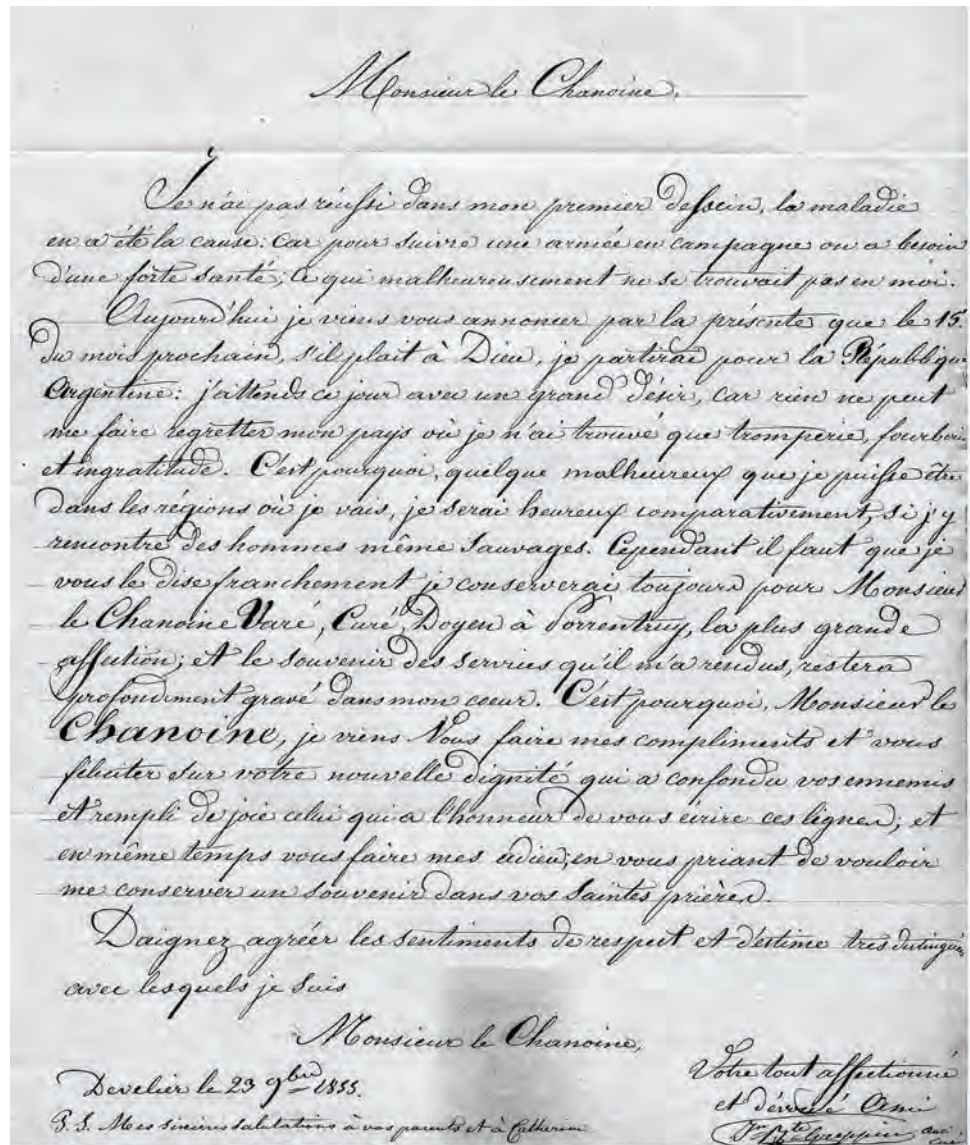 Monsieur le Chanoine,
Je n'ai pas réussi dans mon premier dessein, la maladie
en a été la cause: car pour suivre une armée en campagne on a besoin
d'une forte santé; ce qui malheureusement ne se trouvait pas en moi.
Aujourd'hui je viens vous annoncer par la présente que le 15
du mois prochain, s'il plait à Dieu, je partirai pour la République
Argentine: j'attends ce jour avec un grand désir, car rien ne peut
me faire regretter mon pays où je n'ai trouvé que tromperie, fourberie
et ingratitude. C'est pourquoi, quelque malheureux que je puisse être
dans les régions où je vais, je serai heureux comparativement, si j'y
rencontre des hommes même sauvages. Cependant il faut que je
vous le dise franchement je conserverai toujours pour Monsieur
le Chanoine Varé, Curé, Doyen à Porrentruy, la plus grande
affection; et le souvenir des services qu'il m'a rendus, restera
profondément gravé dans mon coeur. C'est pourquoi, Monsieur le
Chanoine, je viens Vous faire mes compliments et vous
féliciter sur votre nouvelle dignité qui a confondu vos ennemis
et rempli de joie celui qui a l'honneur de vous écrire ces lignes; et
en même temps vous faire mes adieu; en vous priant de vouloir
me conserver un souvenir dans vos saintes prières.
Daignez agréer les sentiments de respect et d'estime très distingués
avec lesquels je suis
Monsieur le Chanoine,
Votre tout affectionné
et dévoué Ami
Develier le 23 9bre 1855.
P. S. Mes sincères salutations à vos parents et à Catherine